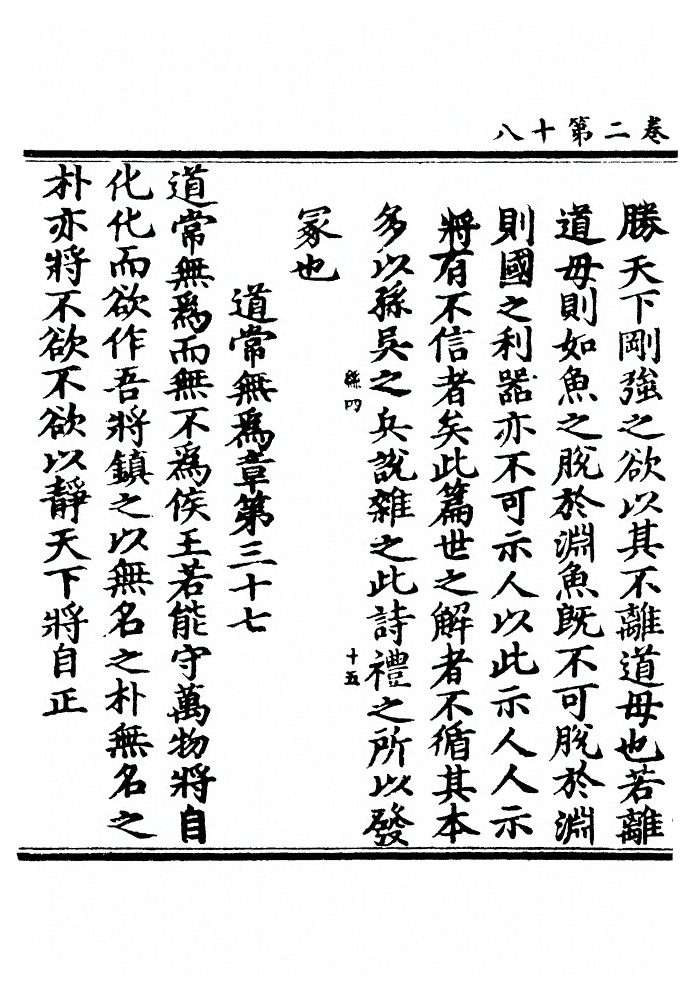 卷二第十八
勝天下剛強之欲以其不離道母也若離
道母則如魚之脫於淵魚既不可脫於淵
則國之利器亦不可示人以此示人人示
將有不信者矣此篇世之解者不循其本
多以孫吳之兵說雜之此詩禮之所以發
絲四 十五
冢也
道常無為章第三十七
道常無為而無不為侯王若能守萬物將自
化化而欲作吾將鎮之以無名之朴無名之
朴亦將不欲不欲以靜天下將自正